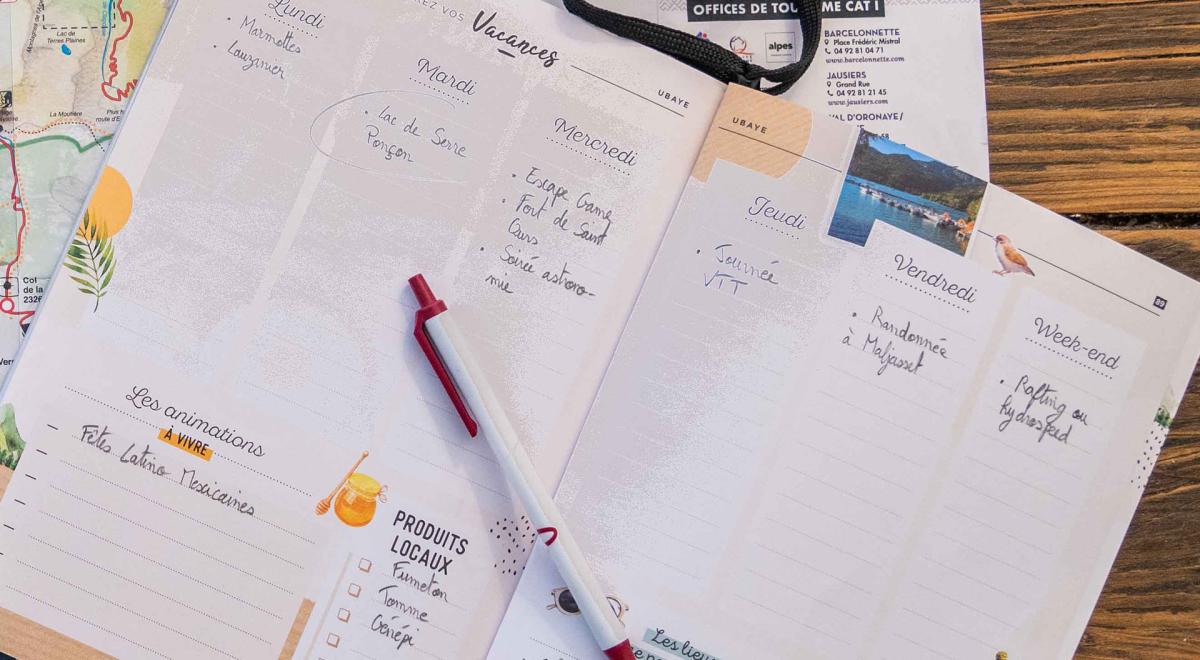 Lac de
Terres Plaines
La Moutière
Col
de la
REZ VOS
Vacances
UBAYE
Lundi
• Marmottes
• Lauzanier
Mardi
• Lac de Serre
Ponçon
Mercredi
• Escape Game
• Fort de Saint
Ours
• Soirée astrono-
mie
Les animations
À VIVRE
Fêtes Latino Mexicaines
PRODUITS
LOCAUX
Fumeton
Tomme
Génépi
UBAYE
Jeudi
• Journée
VTT
Vendredi
• Randonnée
à Maljasset
Week-end
• Rafting ou
hydrospeed
Les lieux
OFFICES DE TOU
ME CAT I
alpes
BARCELONNETTE
Place Frédéric Mistral
04 92 81 04 71
www.barcelonnette.com
JAUSIERS
Grand Rue
04 92 81 21 45
www.jausiers.com
VAL D'ORONAYE /